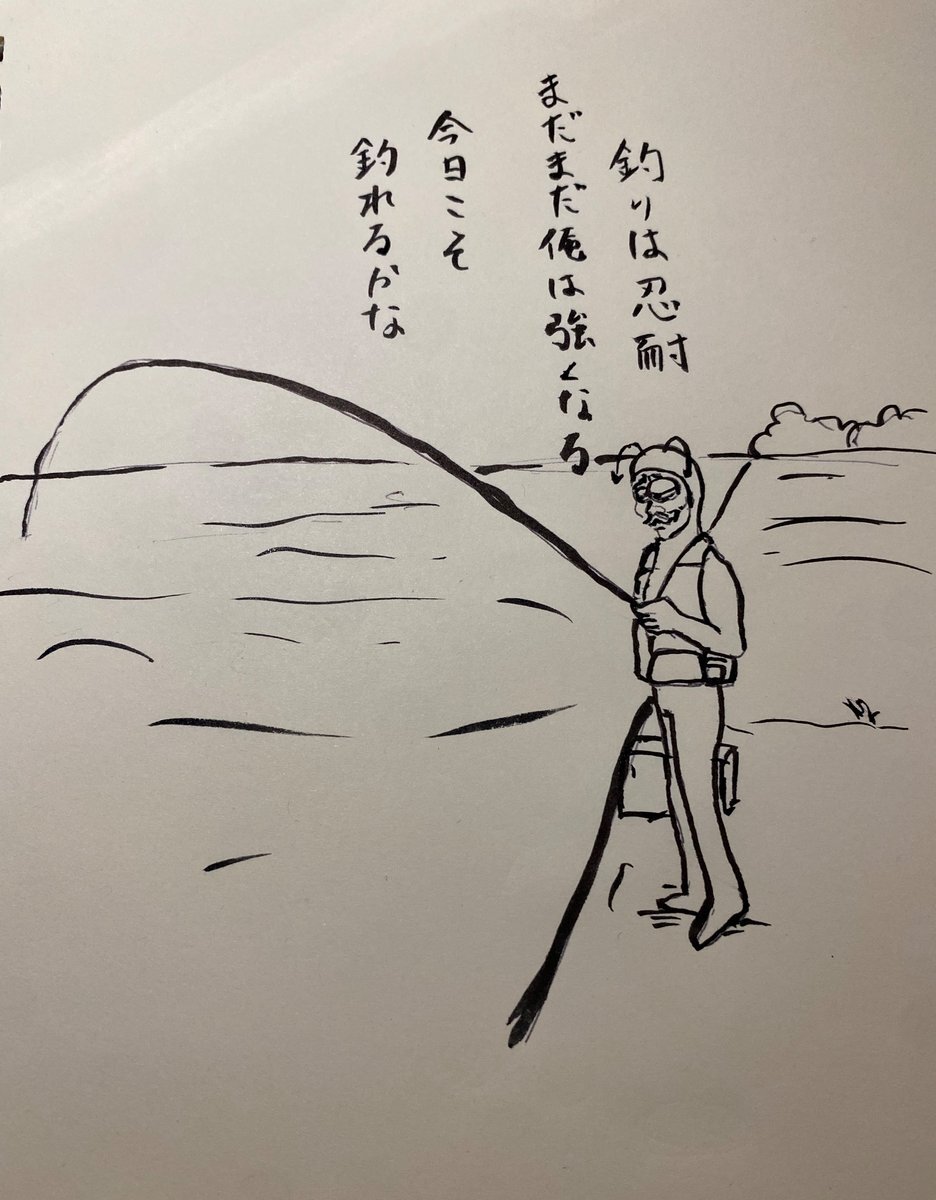 釣りは忍耐
まだまだ俺は強くなる
今日こそ
釣れるかな